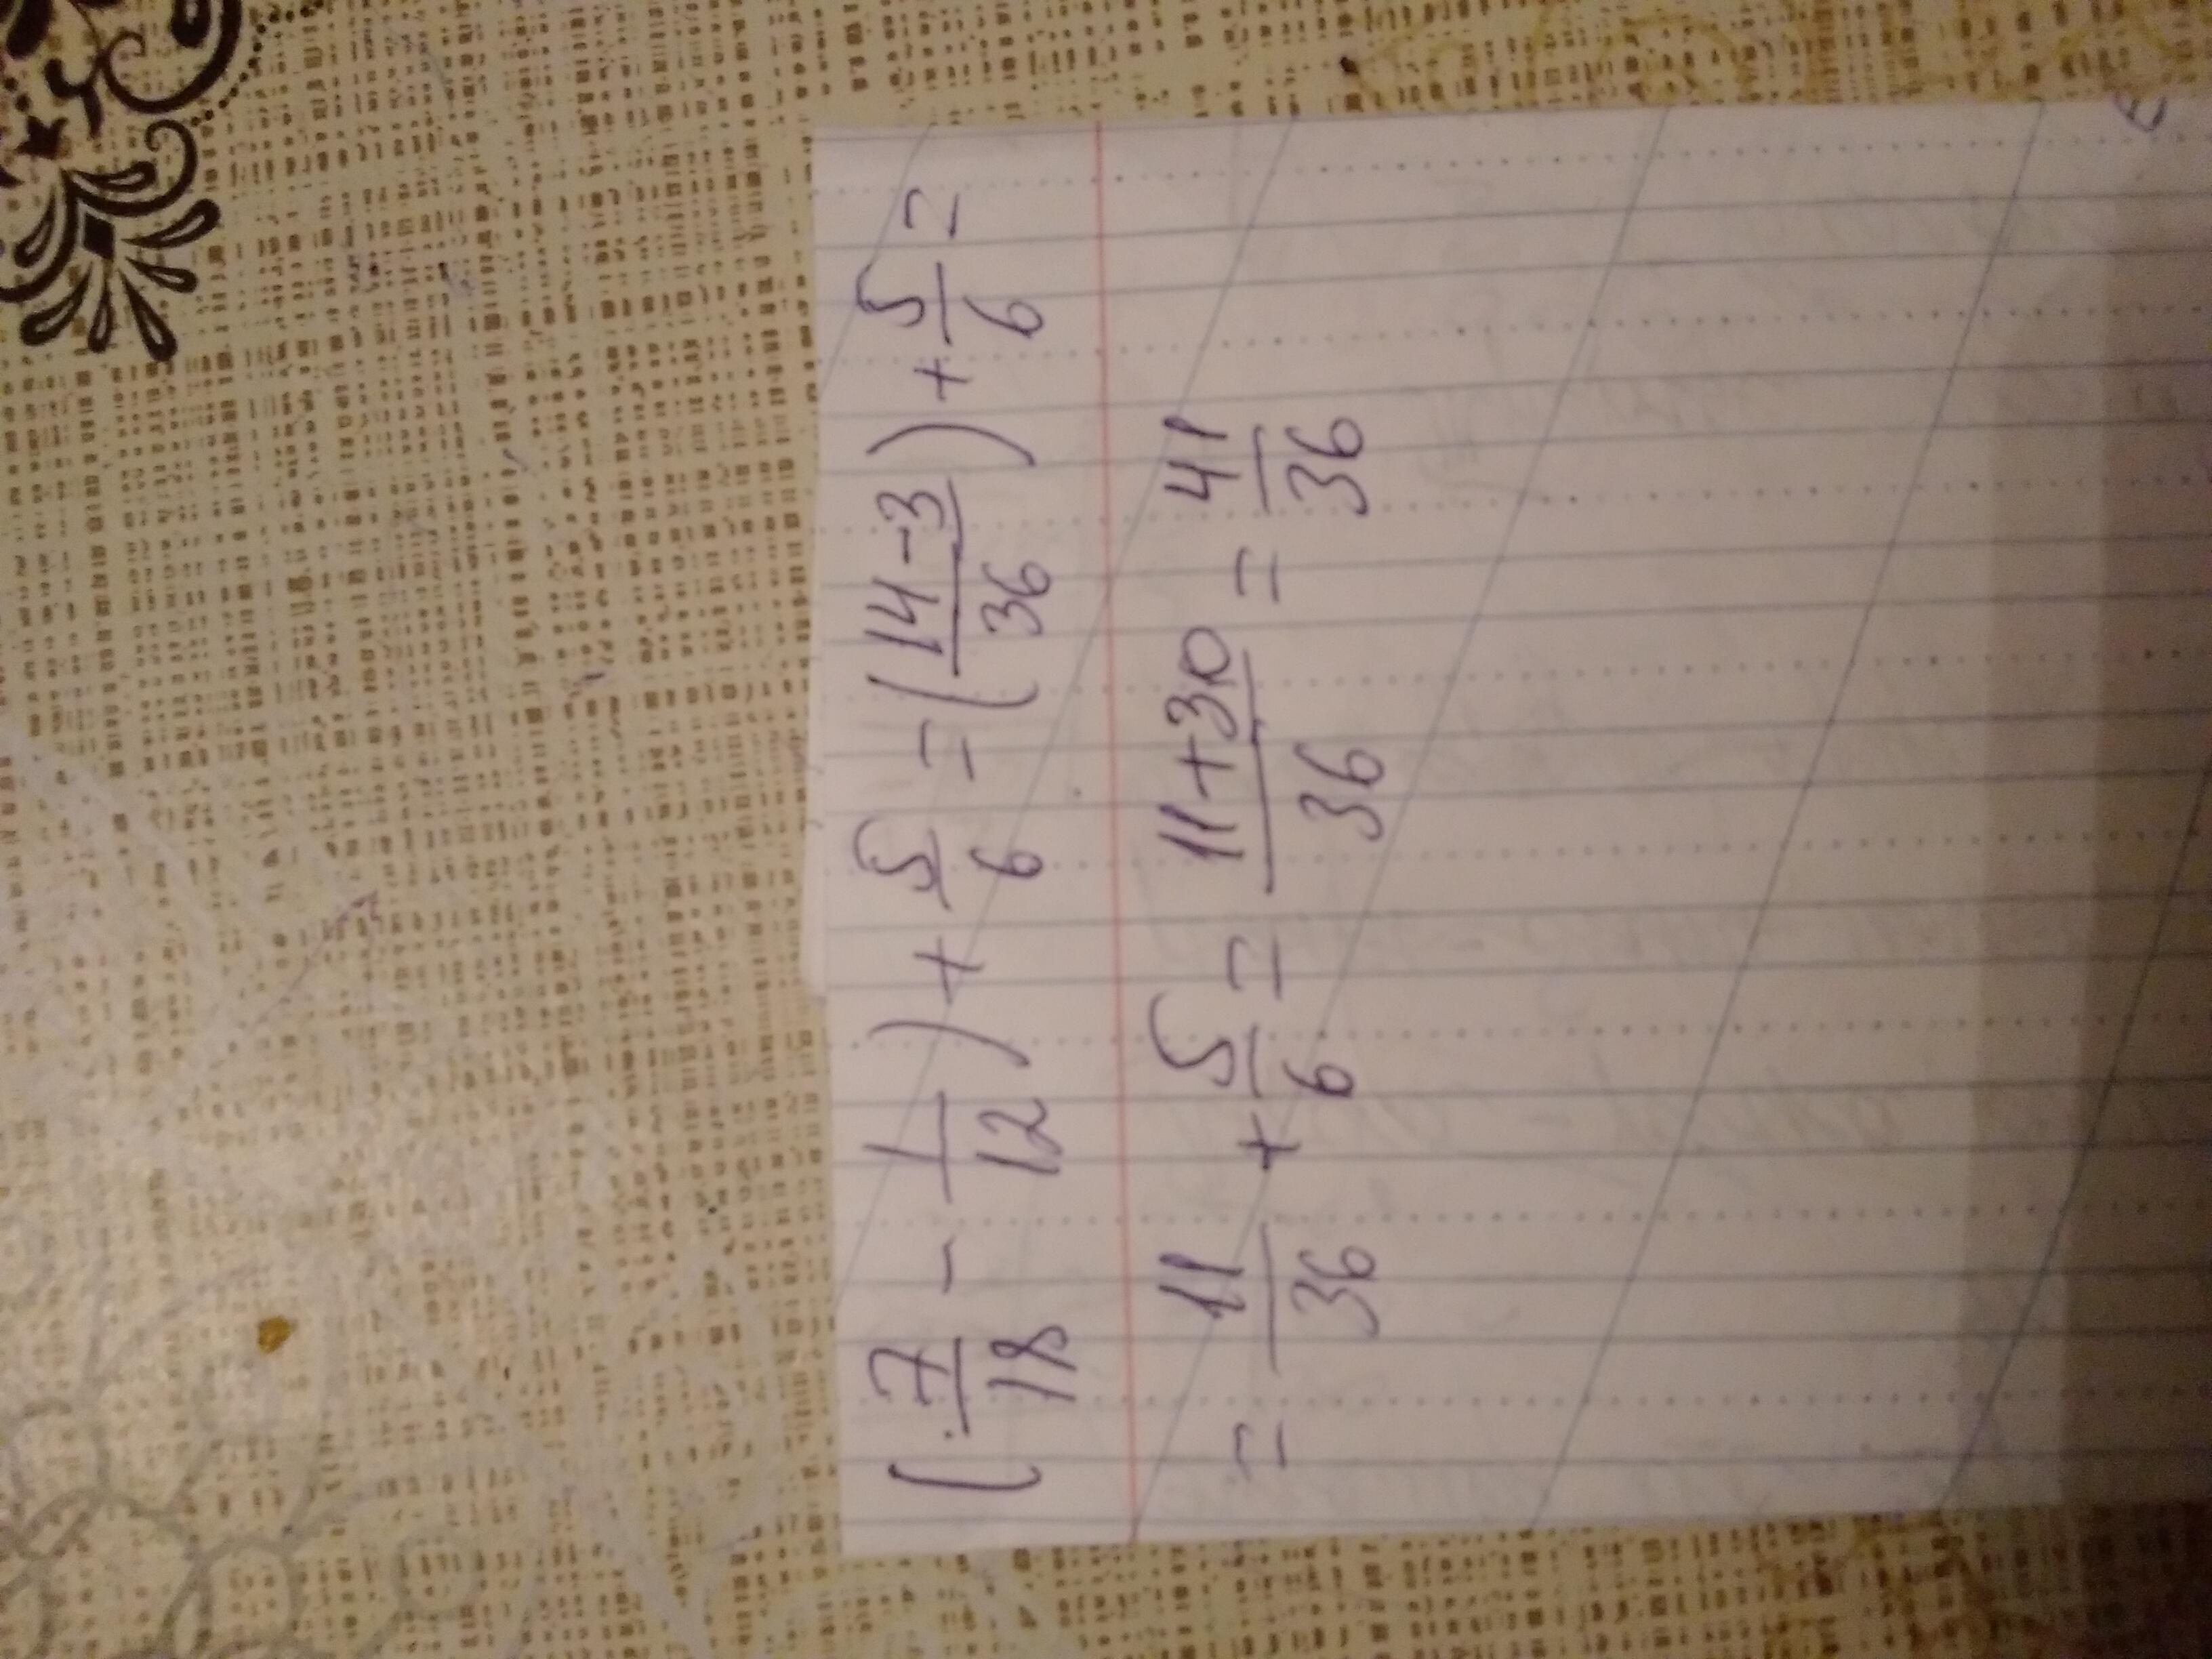 (7/18 - 1/12) + 5/6 = (14-3/36) + 5/6 =
= 11/36 + 5/6 = 11+30/36 = 41/36